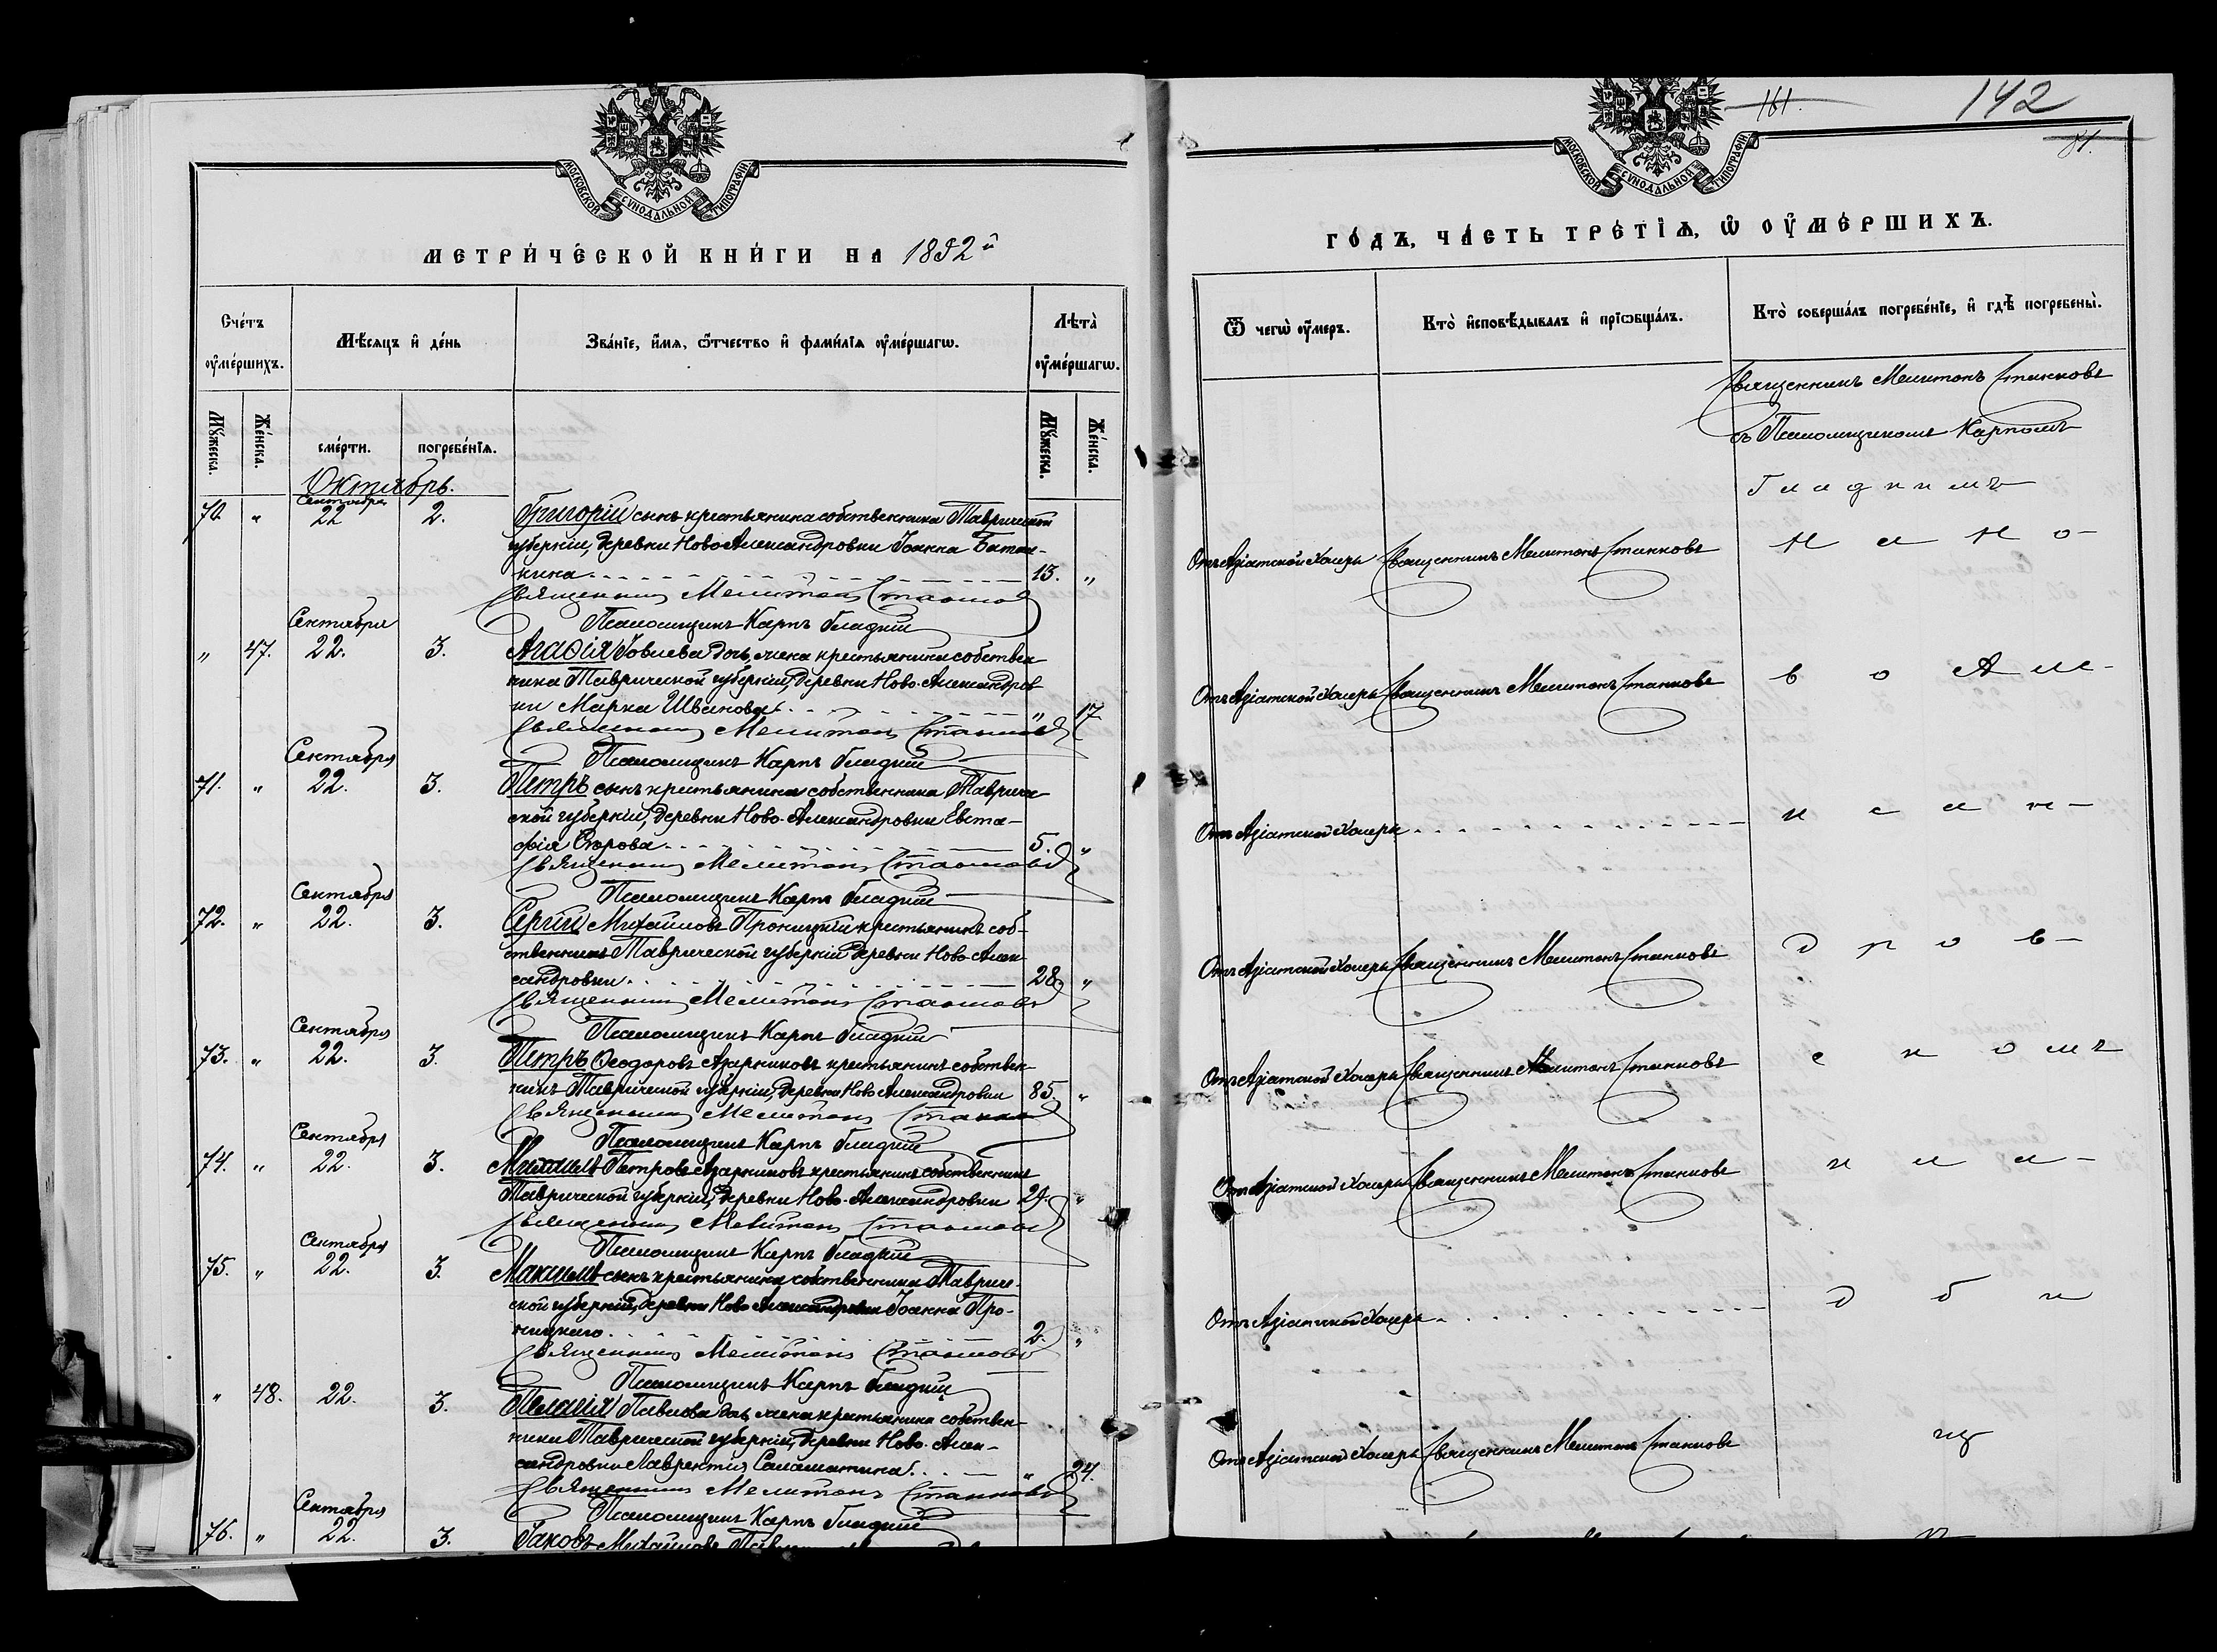 МОСКОВСКОЙ СѴНОДАЛЬНОЙ ТИПОГРАФІИ
МЕТРИ́ЧЕСКОЙ КНИ́ГИ НА 1892й
Сче́тъ оу҆ме́ршихъ.
Мѣ́сяцъ и҆ де́нь
Зва́ніе, и҆́мя, ѻ҆́тчество и҆ фами́лія оу҆ме́ршагѡ.
Лѣта̀ оу҆ме́ршагѡ.
Мꙋ́жеска.
Же́нска.
сме́рти.
погребе́нія.
Мꙋ́жеска.
Же́нска.
Октябрь.
Сентября
70. " 22 2. Григорій сынъ крестьянина собственника Таврической
губерніи, деревни Ново Александровки Іоанна Батан-
кина 13. "
Священникъ Мелитонъ Станковъ
Псаломщикъ Карпъ Гладкій
Сентября
" 47. 22. 3. Агаѳія Іовлева дочь, жена крестьянина собствен-
ника Таврической губерніи, деревни Ново-Александров
ки Марка Иванова " 17
Священникъ Мелитонъ Станковъ
Псаломщикъ Карпъ Гладкій
Сентября
71. " 22. 3. Петръ сынъ крестьянина собственника Тавриче-
ской губерніи, деревни Ново-Александровки Евста-
фія 5. "
Священникъ Мелитонъ Станковъ
Псаломщикъ Карпъ Гладкій
Сентября
72. " 22. 3. Сергій Михайловъ Проницкій крестьянинъ соб-
ственникъ Таврической губерніи деревни Ново-Алек
сандровки 28. "
Священникъ Мелитонъ Станковъ
Псаломщикъ Карпъ Гладкій
Сентября
73. " 22. 3. Петръ Ѳеодоровъ Азарниковъ крестьянинъ собствен-
никъ Таврической губерніи, деревни Ново Александровки 85. "
Священникъ Мелитонъ Станковъ
Псаломщикъ Карпъ Гладкій
Сентября
74. " 22. 3. Михаилъ Петровъ Азарниковъ крестьянинъ собственникъ
Таврической губерніи, деревни Ново-Александровки 29. "
Священникъ Мелитонъ Станковъ
Псаломщикъ Карпъ Гладкій
Сентября
75. " 22. 3. Максимъ сынъ крестьянина собственника Тавриче-
ской губерніи, деревни Ново Александровки Іоанна Про-
ницкаго 2. "
Священникъ Мелитонъ Станковъ
Псаломщикъ Карпъ Гладкій
" 48. 22. 3. Пелагія Павлова дочь, жена крестьянина собствен-
ника Таврической губерніи, деревни Ново-Алек-
сандровки Лаврентія Саламатина " 24.
Священникъ Мелитонъ Станковъ
Псаломщикъ Карпъ Гладкій
Сентября
76. " 22. 3. Іаковъ Михайловъ
161.
142
81.
МОСКОВСКОЙ СѴНОДАЛЬНОЙ ТИПОГРАФІИ
ГО́ДЪ, ЧА́СТЬ ТРЕ́ТІѦ, Ѡ҆ ОУ҆МЕ́РШИХЪ.
Ѿ чегѡ̀ оу҆́меръ.
Кто̀ и҆сповѣ́дывалъ и҆ прїѡбща́лъ.
Кто̀ соверша́лъ погребе́ніе, и҆ гдѣ̀ погребены̀.
Священникъ Мелитонъ Станковъ
съ Псаломщикомъ Карпомъ
Гладкимъ
Отъ Азіатской Холеры Священникъ Мелитонъ Станковъ на Но-
Отъ Азіатской Холеры Священникъ Мелитонъ Станковъ во Але-
Отъ Азіатской Холеры ксан-
Отъ Азіатской Холеры Священникъ Мелитонъ Станковъ дров-
Отъ Азіатской Холеры Священникъ Мелитонъ Станковъ скомъ
Отъ Азіатской Холеры Священникъ Мелитонъ Станковъ кла-
Отъ Азіатской Холеры дби
Отъ Азіатской Холеры Священникъ Мелитонъ Станковъ щѣ